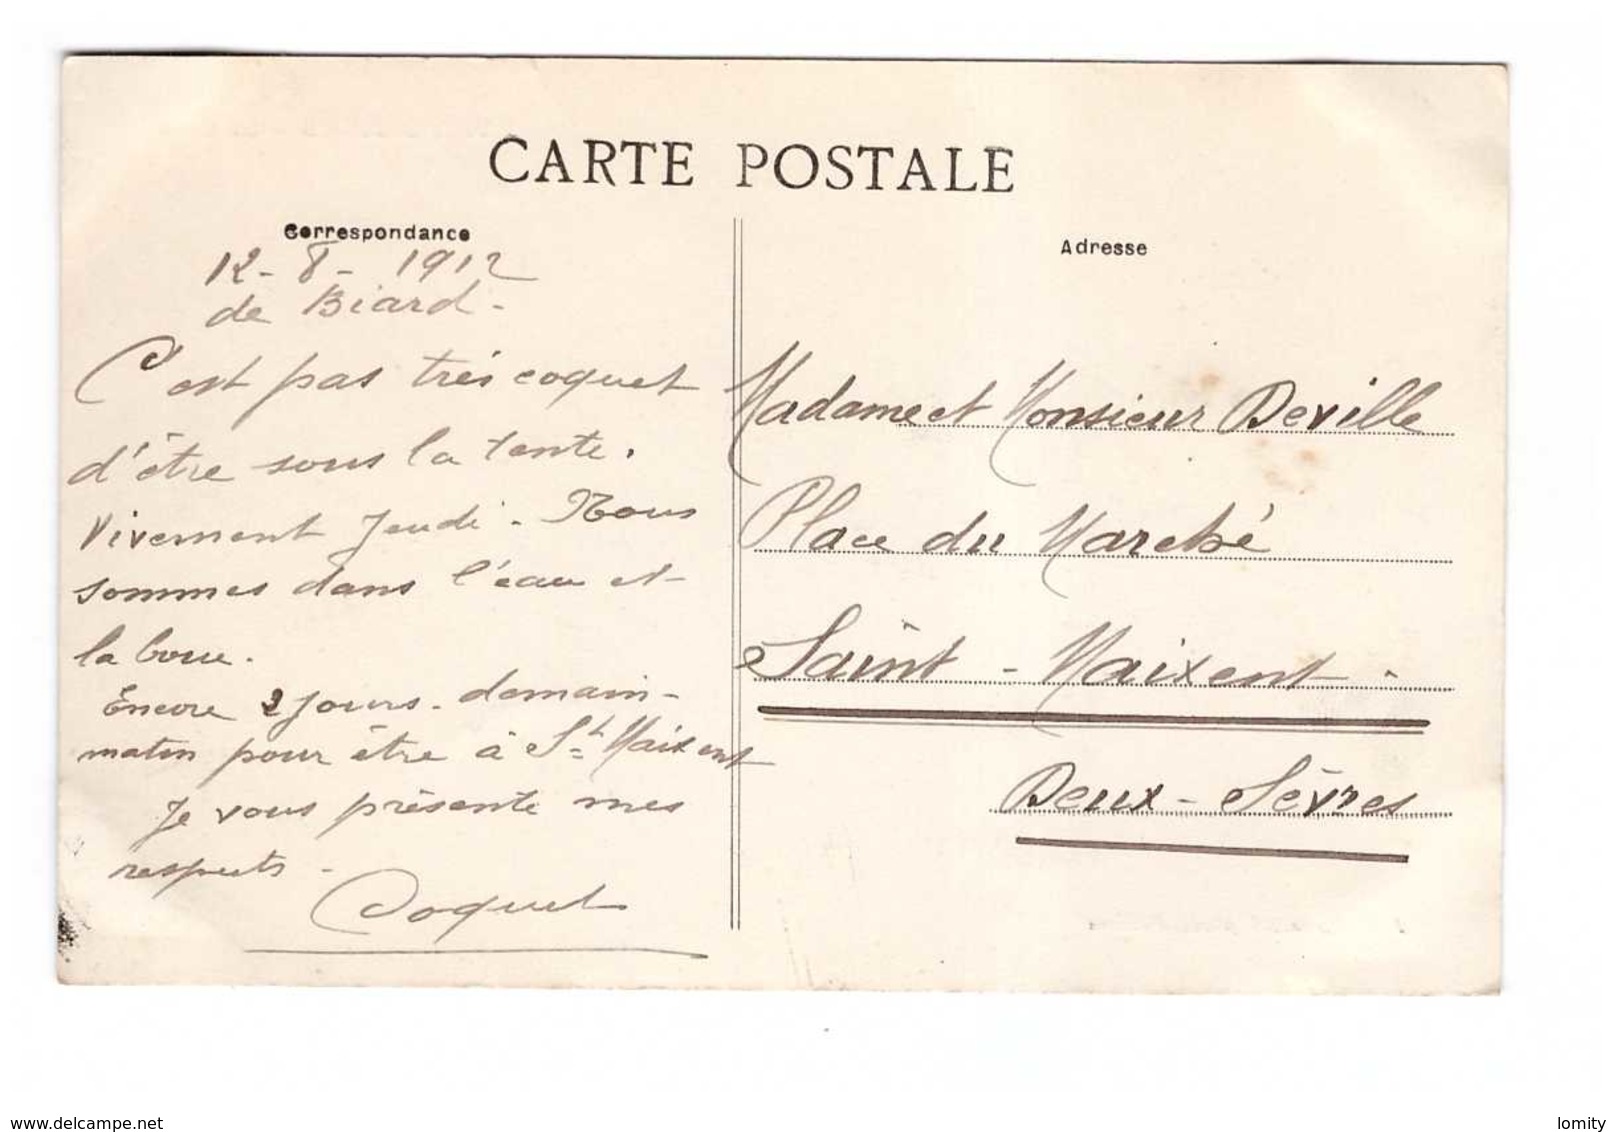 CARTE POSTALE
Correspondance
12-8-1912
de Biard-
C'est pas très coquet
d'être sous la tente.
Vivement Jeudi. Nous
sommes dans l'eau et
la boue.
Encore 2 jours. demain-
matin pour être à St Maixent
Je vous présente mes
respects-
Coquet
Adresse
Madame et Monsieur Deville
Place du Marché
Saint-Maixent.
Deux-Sèvres
www.delcampe.net
lomity